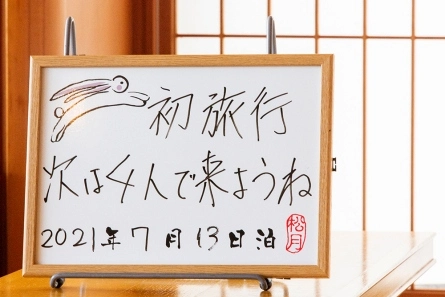 初旅行
次は4人で来ようね
2021年7月13日泊
松月